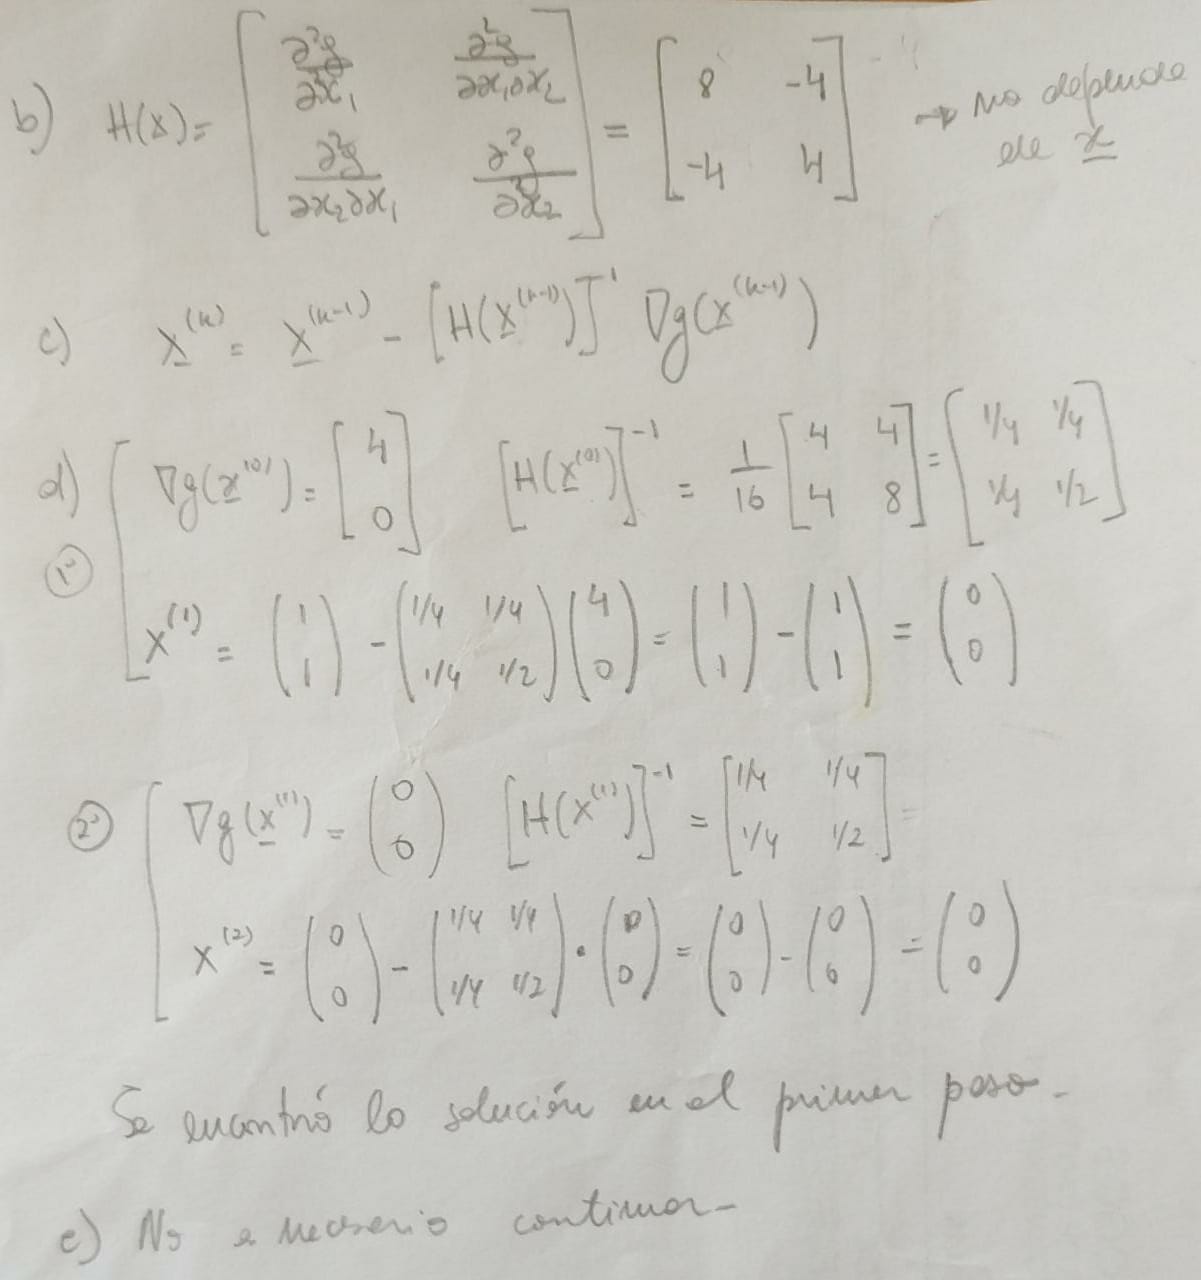 b) H(x) = [∂²g/∂²x₁ ∂²g/∂x₁∂x₂ ; ∂²g/∂x₂∂x₁ ∂²g/∂²x₂] = [8 -4 ; -4 4] → No depende de x
c) x⁽ᵏ⁾ = x⁽ᵏ⁻¹⁾ - [H(x⁽ᵏ⁻¹⁾)]⁻¹ ∇g(x⁽ᵏ⁻¹⁾)
d) ∇g(x⁽⁰⁾) = [4 ; 0] [H(x⁽⁰⁾)]⁻¹ = 1/16 [4 4 ; 4 8] = [1/4 1/4 ; 1/4 1/2]
1º x⁽¹⁾ = (1 ; 1) - (1/4 1/4 ; 1/4 1/2) (4 ; 0) = (1 ; 1) - (1 ; 1) = (0 ; 0)
2º ∇g(x⁽¹⁾) = (0 ; 0) [H(x⁽¹⁾)]⁻¹ = [1/4 1/4 ; 1/4 1/2]
x⁽²⁾ = (0 ; 0) - (1/4 1/4 ; 1/4 1/2) · (0 ; 0) = (0 ; 0) - (0 ; 0) = (0 ; 0)
Se encontró la solución en el primer paso -
e) No e necesario continuar -